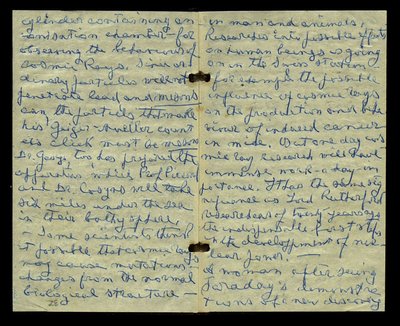 cylinder containing an
ionisation chamber for
observing the behaviour of
cosmic Rays. Since or-
dinary particles will not
penetrate lead and mesons
can, the particles that make
his Geiger-Mueller count
ers click must be mesons
Dr. George, too has prepared the
apparatus which Prof Piccard
and Dr. Cosyns will take
six miles under the sea
in their bathysphere.
Some scientists think
it possible that cosmic rays
may cause mutations -
changes from the normal
biological structure -
26
in man and animals.
Researches into possible effects
on human beings is going
on in the Swiss station
for example the possible
influence of cosmic rays
on the production and
of induced cancer
in mice. But one day cos
mic ray research will have
immense work-a-day im
portance. It has the same sig
nificance as Lord Rutherford
researches of twenty years ago
the indispensable first steps
in the development of nuc
lear power. —
A woman after seeing
Faraday's demonstra
tions of new discovery